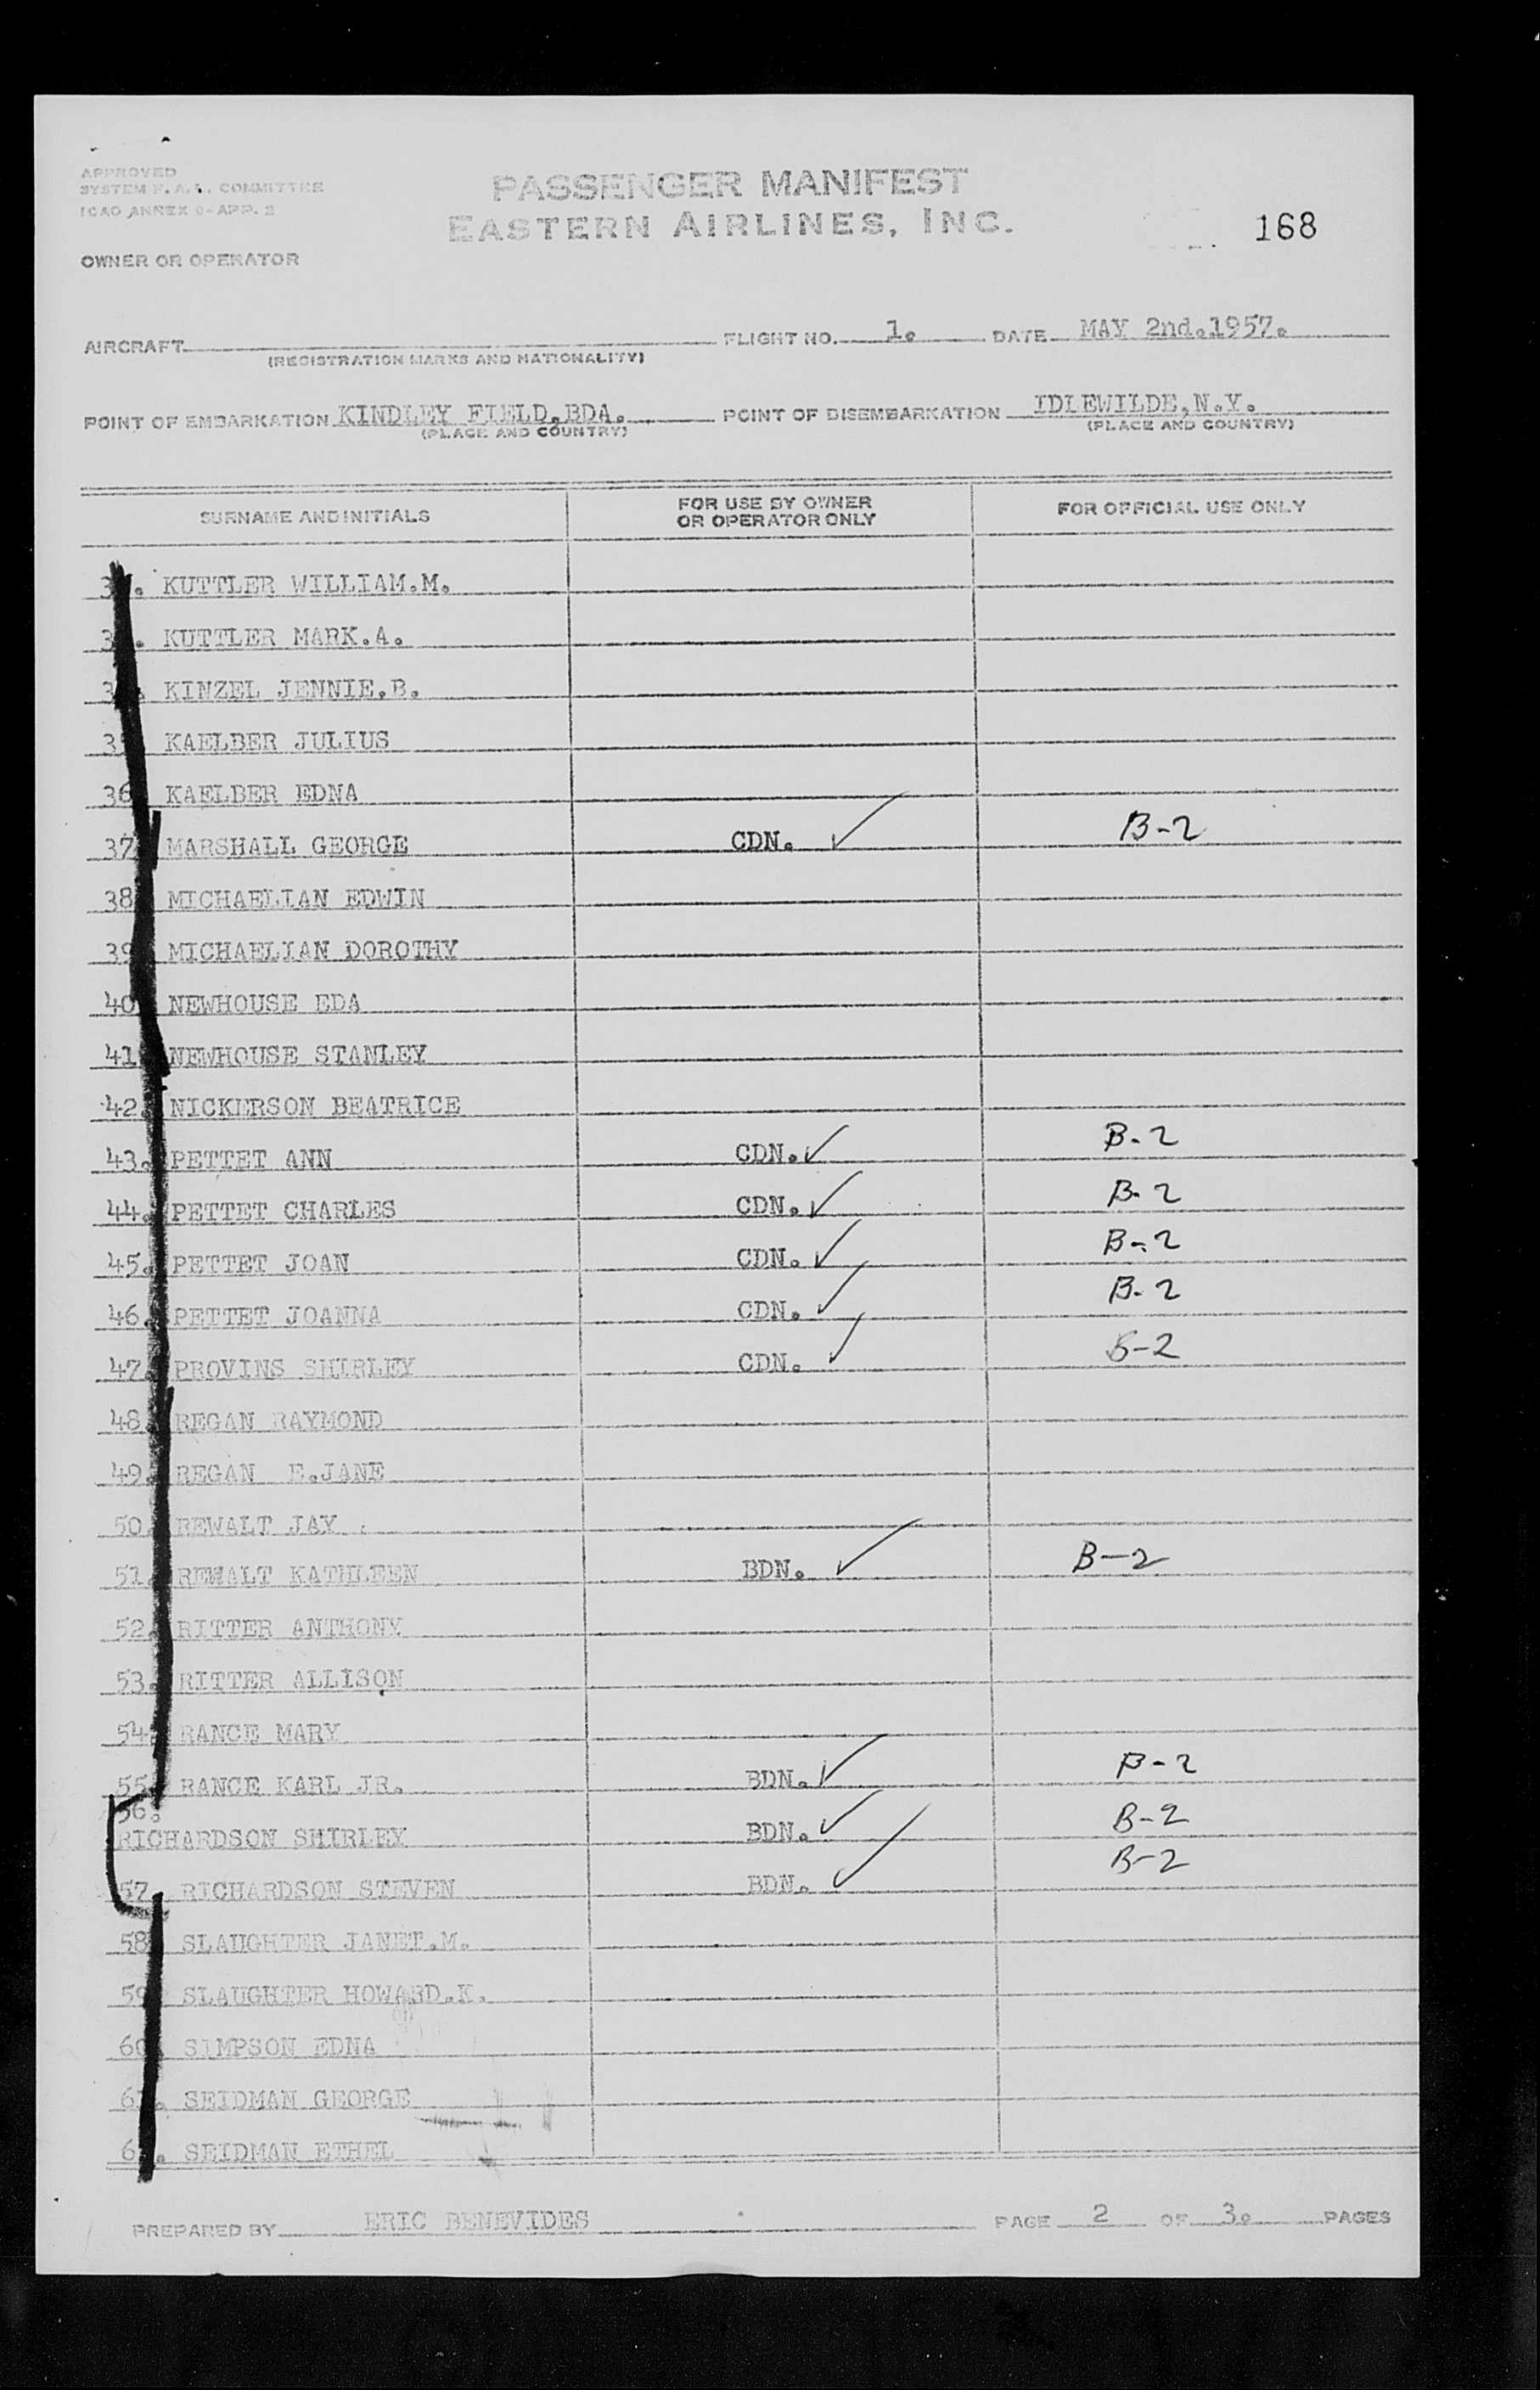 APPROVED
SYSTEM F.A.L. COMMITTEE
ICAO ANNEX 9-APP. 2
PASSENGER MANIFEST
EASTERN AIRLINES, INC.
168
OWNER OR OPERATOR
AIRCRAFT FLIGHT NO. 1. DATE MAY 2nd.1957.
(REGISTRATION MARKS AND NATIONALITY)
POINT OF EMBARKATION KINDLEY FIELD,BDA. POINT OF DISEMBARKATION IDLEWILDE,N.Y.
(PLACE AND COUNTRY) (PLACE AND COUNTRY)
SURNAME AND INITIALS FOR USE BY OWNER OR OPERATOR ONLY FOR OFFICIAL USE ONLY
KUTTLER WILLIAM.M.
KUTTLER MARK.A.
KINZEL JENNIE.B.
KAELBER JULIUS
36 KAELBER EDNA
37 MARSHALL GEORGE CDN. ✓ B-2
38 MICHAELIAN EDWIN
39 MICHAELIAN DOROTHY
40 NEWHOUSE EDA
41 NEWHOUSE STANLEY
42. NICKERSON BEATRICE
43. PETTET ANN CDN. ✓ B-2
44. PETTET CHARLES CDN. ✓ B-2
45. PETTET JOAN CDN. ✓ B-2
46. PETTET JOANNA CDN. ✓ B-2
47. PROVINS SHIRLEY CDN. ✓ B-2
48. REGAN RAYMOND
49. REGAN E.JANE
50. REWALT JAY
51. REWALT KATHLEEN BDN. ✓ B-2
52. RITTER ANTHONY
53. RITTER ALLISON
54. RANCE MARY
55. RANCE KARL JR. BDN. ✓ B-2
56.
RICHARDSON SHIRLEY BDN. ✓ B-2
57. RICHARDSON STEVEN BDN. ✓ B-2
58 SLAUGHTER JANET.M.
59 SLAUGHTER HOWARD.K.
60 SIMPSON EDNA
SEIDMAN GEORGE
SEIDMAN ETHEL
PREPARED BY ERIC BENEVIDES PAGE 2 OF 3. PAGES